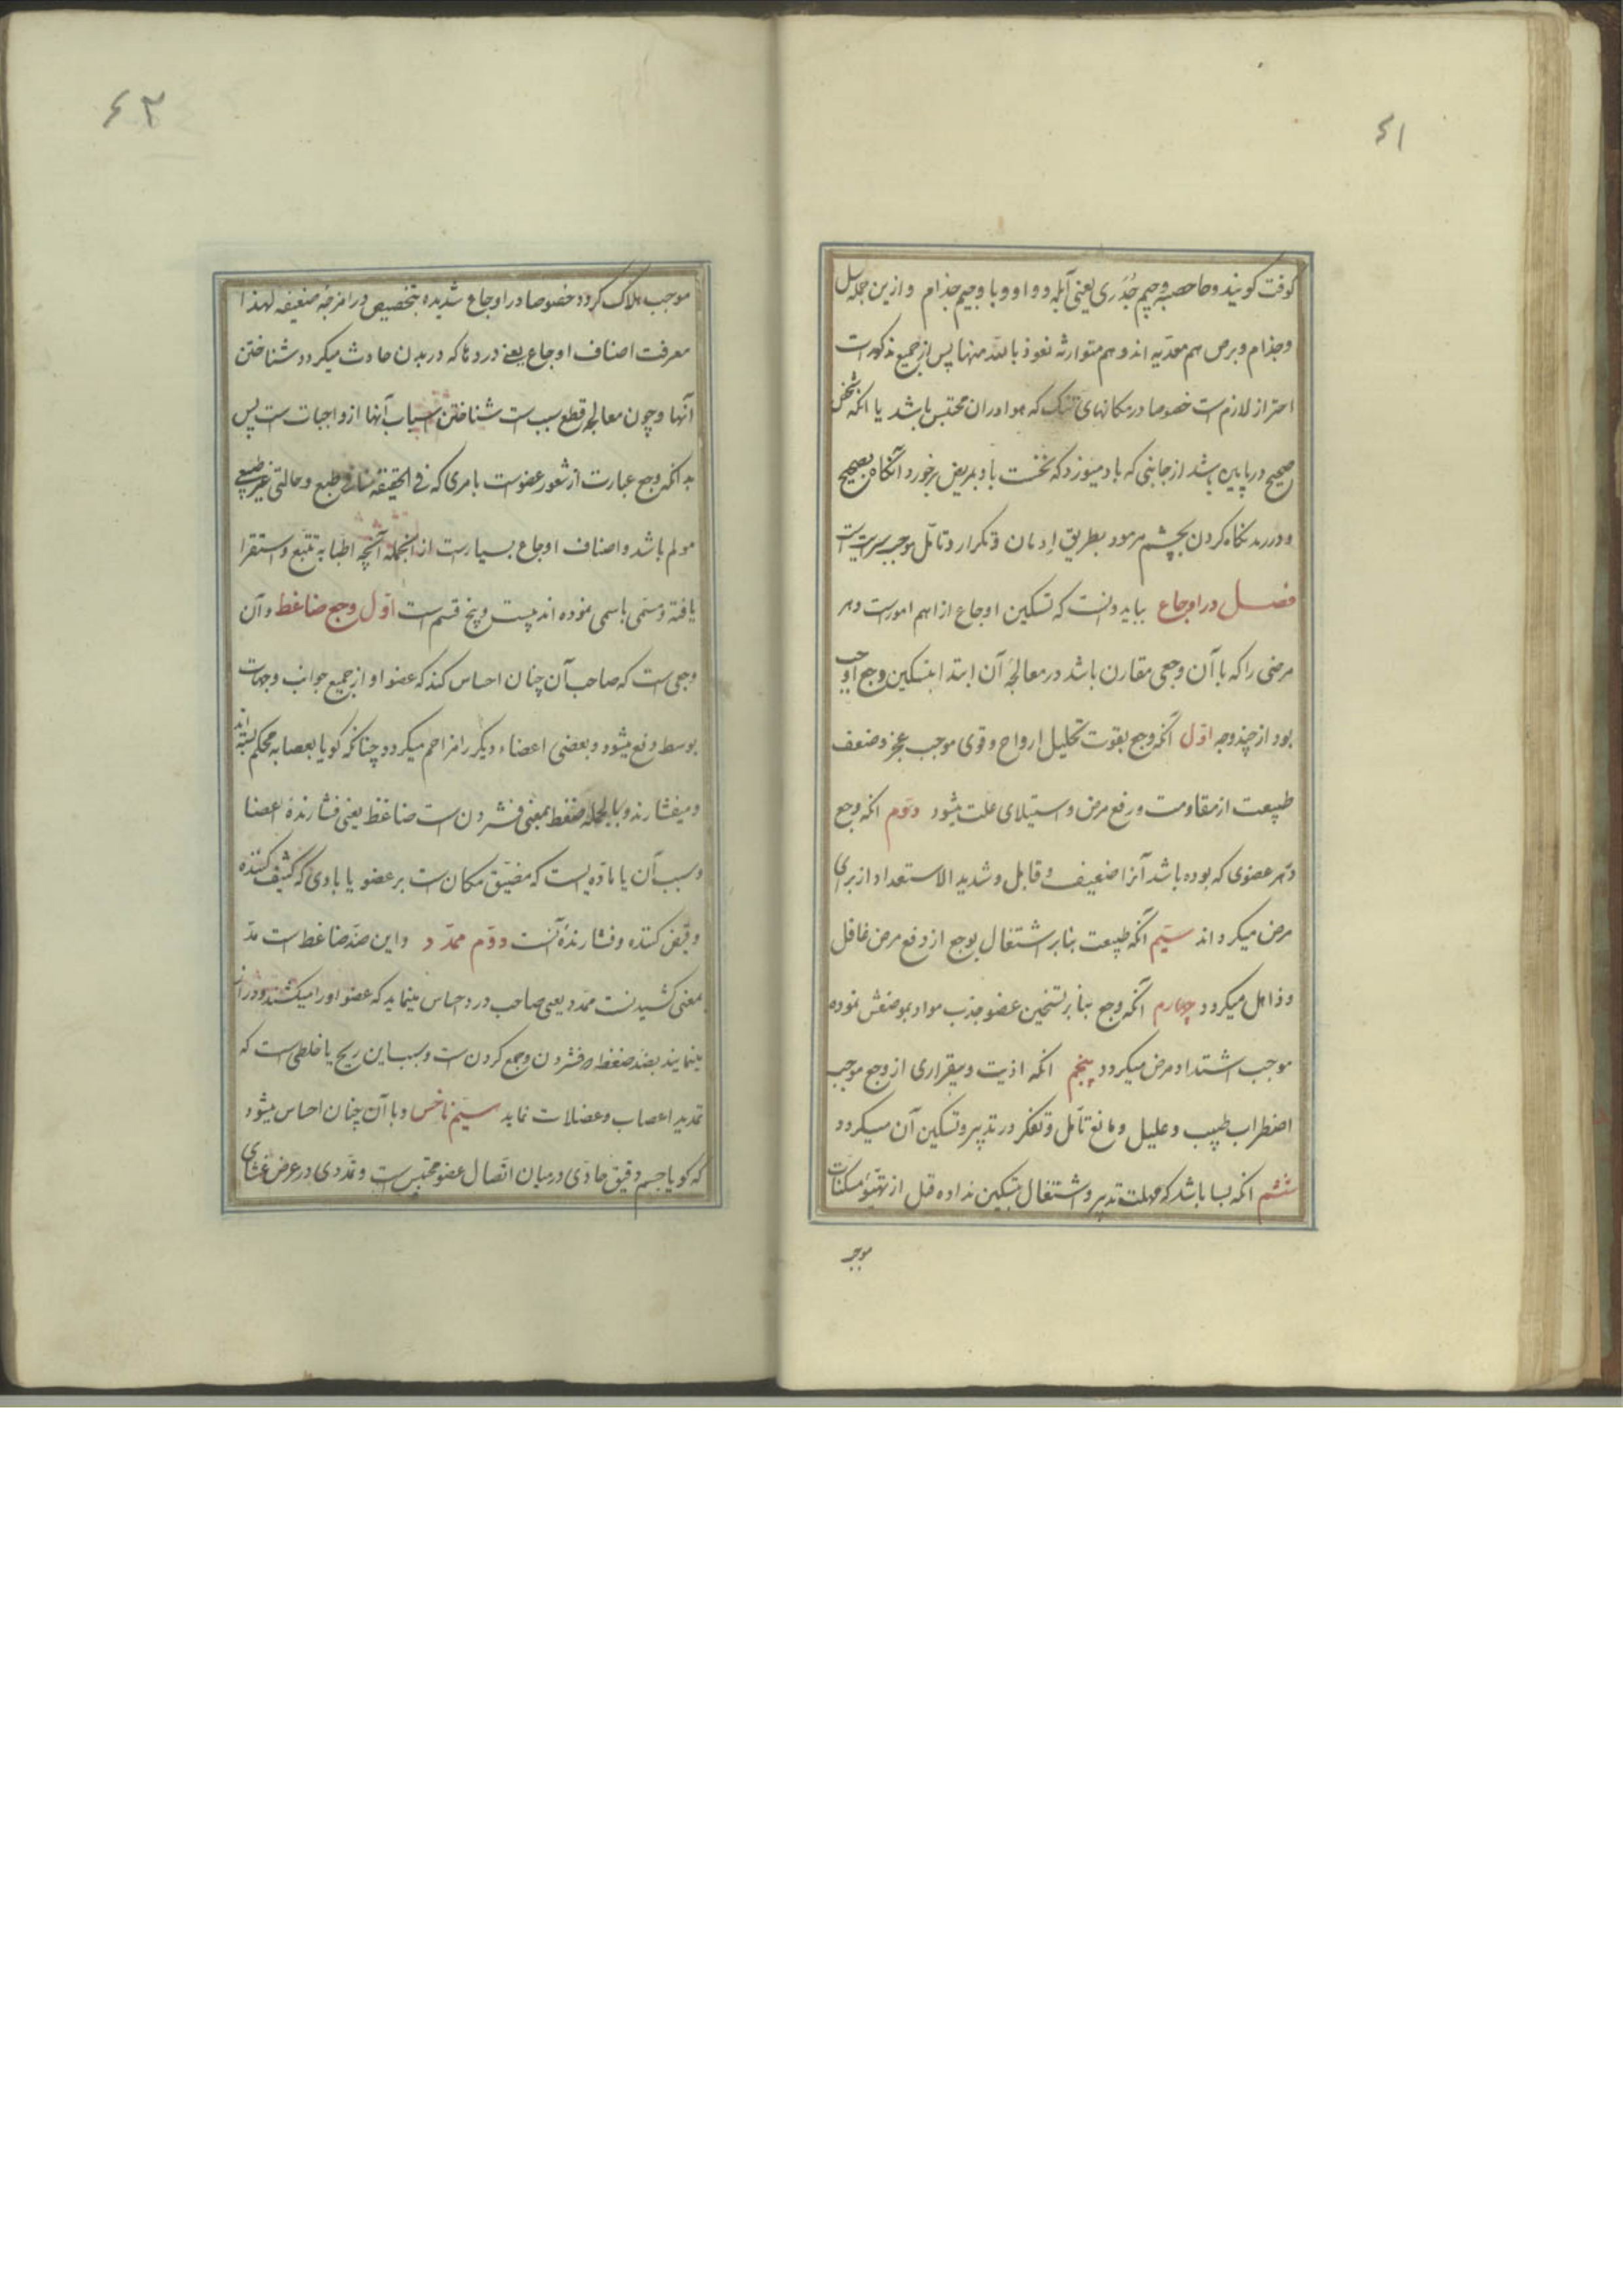 ۶۱
کوفت کویند و حا حصبه و جیم جُدَری یعنی آبله و واو وبا و جیم جذام و ازین جمله سل
و جذام و برص هم معدیه اند و هم متوارثه نعوذ بالله منها پس از جمیع مذکورات
احتراز لازمست خصوصا در مکانهای تنک که هوا در ان محتبس باشد یا انکه شخص
صحیح در پایین باشد از جانبی که باد میوزد که نخست باد بمریض برخورد آنکاه بصحیح
و در رمد نکاه کردن بچشم مرمود بطریق اِدمان و تکرار و تامّل موجب سرایتست
فصل در اوجاع بباید دانست که تسکین اوجاع از اهم امورست و هر
مرضی را که با آن وجعی مقارن باشد در معالجهٔ آن ابتدا بتسکین وجع اوجب
بود از چند وجه اوّل آنکه وجع بقوت تحلیل ارواح و قوی موجب عجز و ضعف
طبیعت از مقاومت و رفع مرض و استیلای علت میشود دوّم انکه وجع
در هر عضوی که بوده باشد آنرا ضعیف و قابل و شدید الاستعداد از برای
مرض میکرداند سیّم آنکه طبیعت بنابر اشتغال بوجع از دفع مرض غافل
و ذاهل میکردد چهارم آنکه وجع بنابر تسخین عضو جذب مواد بموضعش نموده
موجب اشتداد مرض میکردد پنجم انکه اذیت و بیقراری از وجع موجب
اضطراب طبیب و علیل و مانع تامّل و تفکر در تدبیر و تسکین آن میکردد
ششم انکه بسا باشد که مهلت تدبیر و اشتغال بتسکین نداده قبل از تهیّؤ مسکنات
موجب
۶۲
موجب هلاک کردد خصوصا در اوجاع شدیده بتخصیص در امزجهٔ ضعیفه لهذا
معرفت اصناف اوجاع یعنی دردها که در بدن حادث میکردد شناختن
آنها و چون معالجه قطع سبب است شناختن اسباب آنها از واجبات است پس
بدانکه وجع عبارت از شعور عضوست بامری که فی الحقیقه منافی طبع و حالتی غیر طبیعی
مولم باشد و اصناف اوجاع بسیارست از انجمله آنچه اطبا به تتبّع و استقرا
یافته و مسمّی باسمی نموده اند بیست و پنج قسم است اوّل وجع ضاغط و آن
وجعی است که صاحب آن چنان احساس کند که عضو او از جمیع جوانب و جهات
بوسط دفع میشود و بعضی اعضاء دیکر را مزاحم میکردد چنانکه کویا بعصابه محکم بسته اند
و میفشارند و بالجمله ضغط بمعنی فشردن است ضاغط یعنی فشارندهٔ اعضا
و سبب آن یا ماده ایست که مضیّق مکان است بر عضو یا بادی که کثیف کننده
و قبض کننده و فشارندهٔ آنست دوّم ممدّد و این ضدّ ضاغط است مدّ
بمعنی کشیدنست ممدّد یعنی صاحب درد احساس مینماید که عضو او را میکشند و دراز
مینمایند بضد ضغط و فشردن و جمع کردن است و سبب این ریح یا خلطی است که
تمدید اعصاب و عضلات نماید سیّم ناخس و با آن چنان احساس میشود
که کویا جسم دقیق حادّی در میان اتّصال عضو محتبس است و تمدّدی در عرض غشای